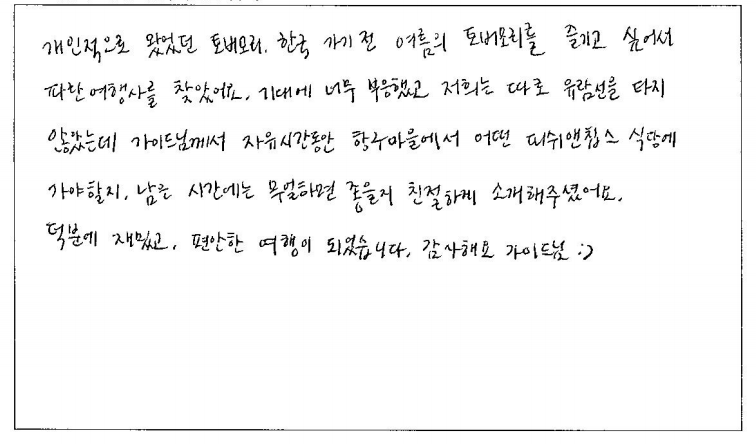 개인적으로 왔었던 토버모리. 한국 가기전 여름의 토버모리를 즐기고 싶어서
파란여행사를 찾았어요. 기대에 너무 부응했고 저희는 따로 유람선을 타지
않았는데 가이드님께서 자유시간동안 항구마을에서 어떤 피쉬앤칩스 식당에
가야할지, 남은 시간에는 무얼하면 좋을지 친절하게 소개해주셨어요.
덕분에 재밌고, 편안한 여행이 되었습니다. 감사해요 가이드님 :)